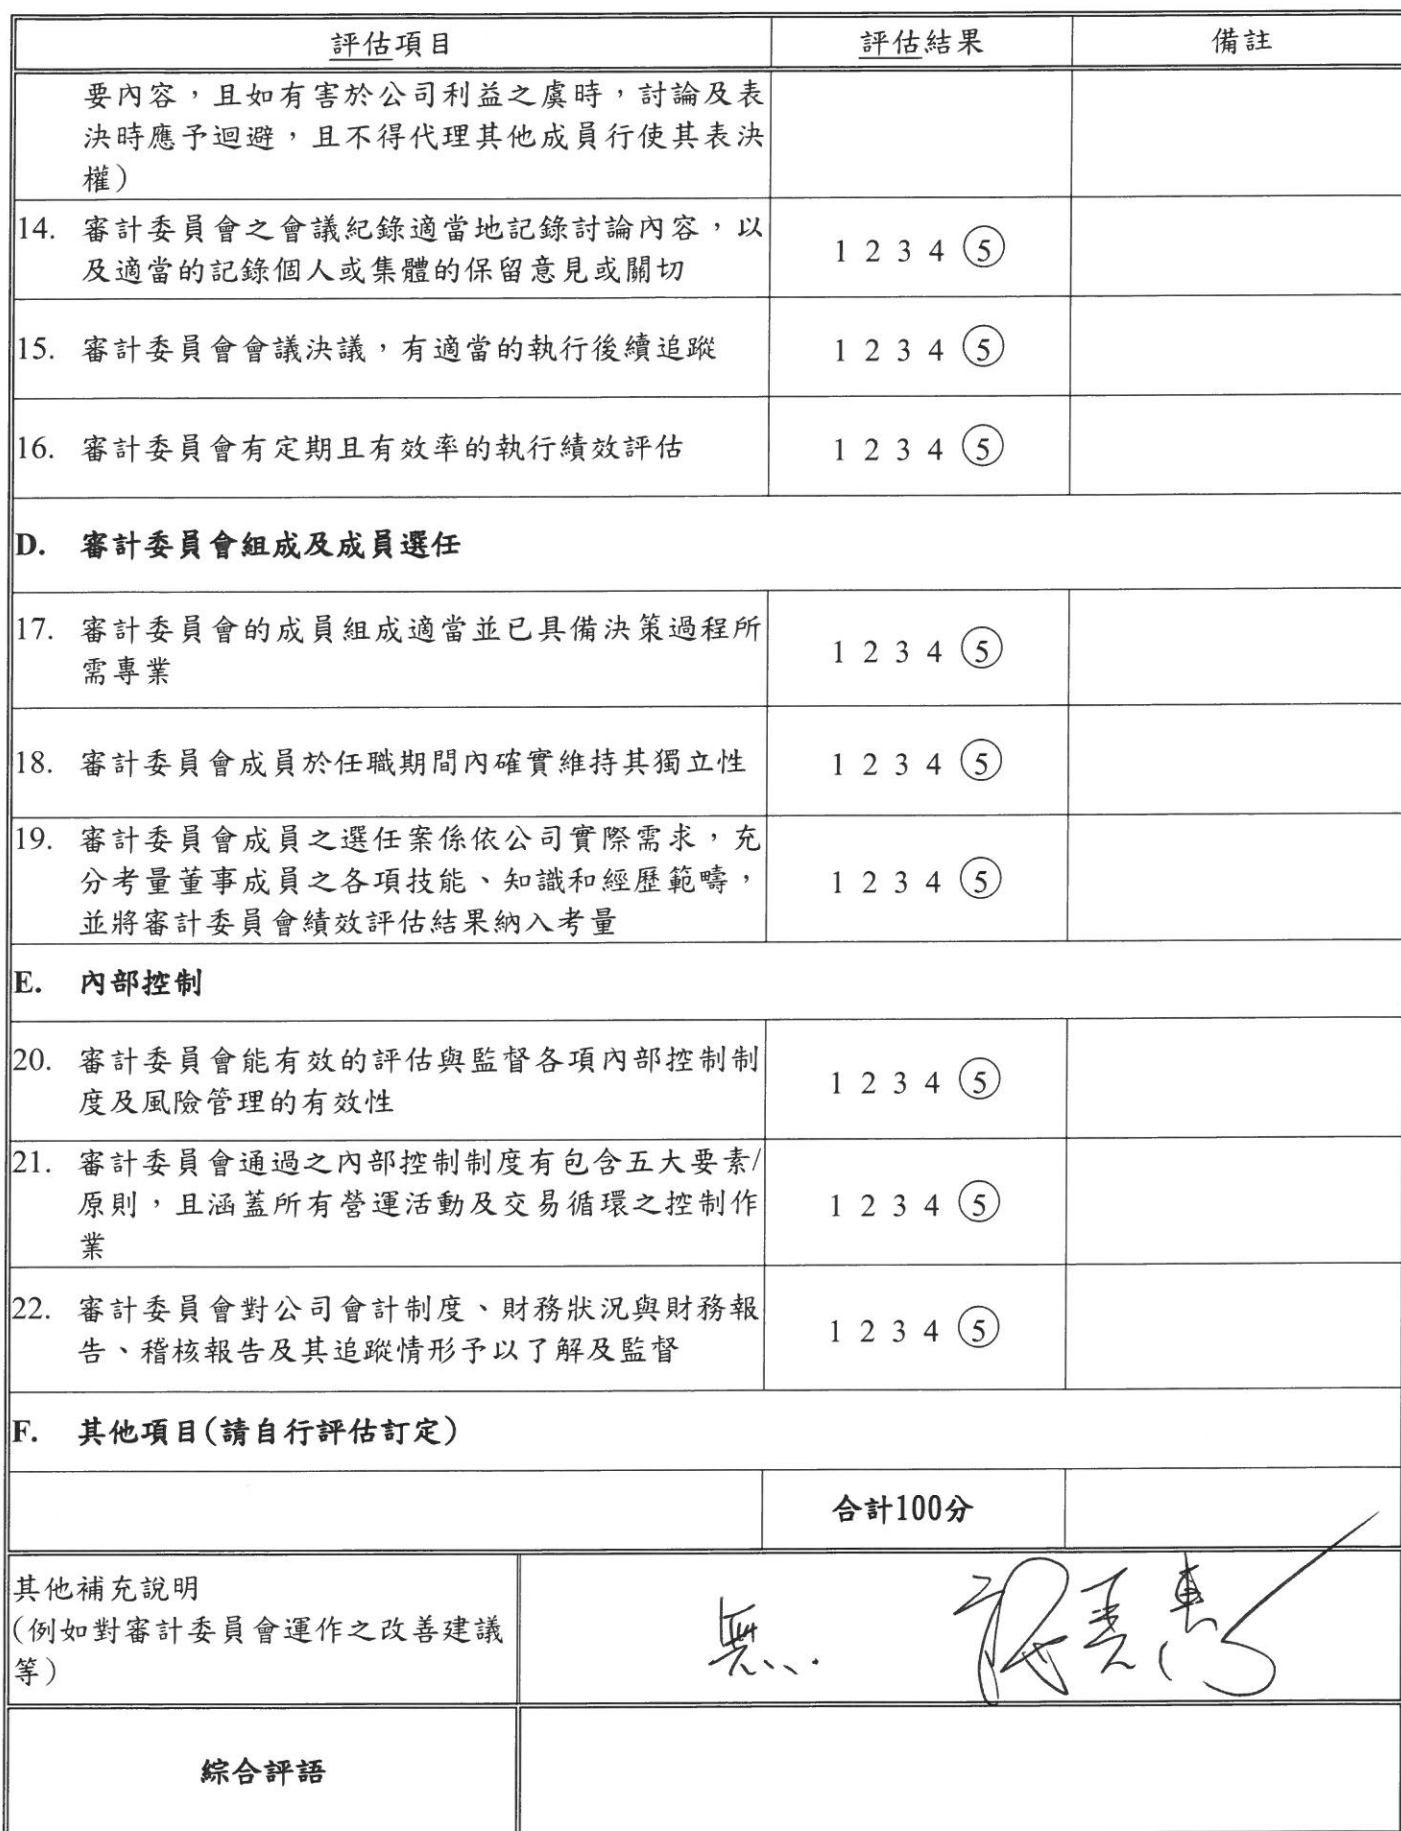 評估項目 評估結果 備註
要內容，且如有害於公司利益之虞時，討論及表
決時應予迴避，且不得代理其他成員行使其表決
權）
14. 審計委員會之會議紀錄適當地記錄討論內容，以
及適當的記錄個人或集體的保留意見或關切
1 2 3 4 5
15. 審計委員會會議決議，有適當的執行後續追蹤
1 2 3 4 5
16. 審計委員會有定期且有效率的執行績效評估
1 2 3 4 5
D. 審計委員會組成及成員選任
17. 審計委員會的成員組成適當並已具備決策過程所
需專業
1 2 3 4 5
18. 審計委員會成員於任職期間內確實維持其獨立性
1 2 3 4 5
19. 審計委員會成員之選任案係依公司實際需求，充
分考量董事成員之各項技能、知識和經歷範疇，
並將審計委員會績效評估結果納入考量
1 2 3 4 5
E. 內部控制
20. 審計委員會能有效的評估與監督各項內部控制制
度及風險管理的有效性
1 2 3 4 5
21. 審計委員會通過之內部控制制度有包含五大要素/
原則，且涵蓋所有營運活動及交易循環之控制作
業
1 2 3 4 5
22. 審計委員會對公司會計制度、財務狀況與財務報
告、稽核報告及其追蹤情形予以了解及監督
1 2 3 4 5
F. 其他項目(請自行評估訂定)
合計100分
其他補充說明
(例如對審計委員會運作之改善建議
等)
無
綜合評語